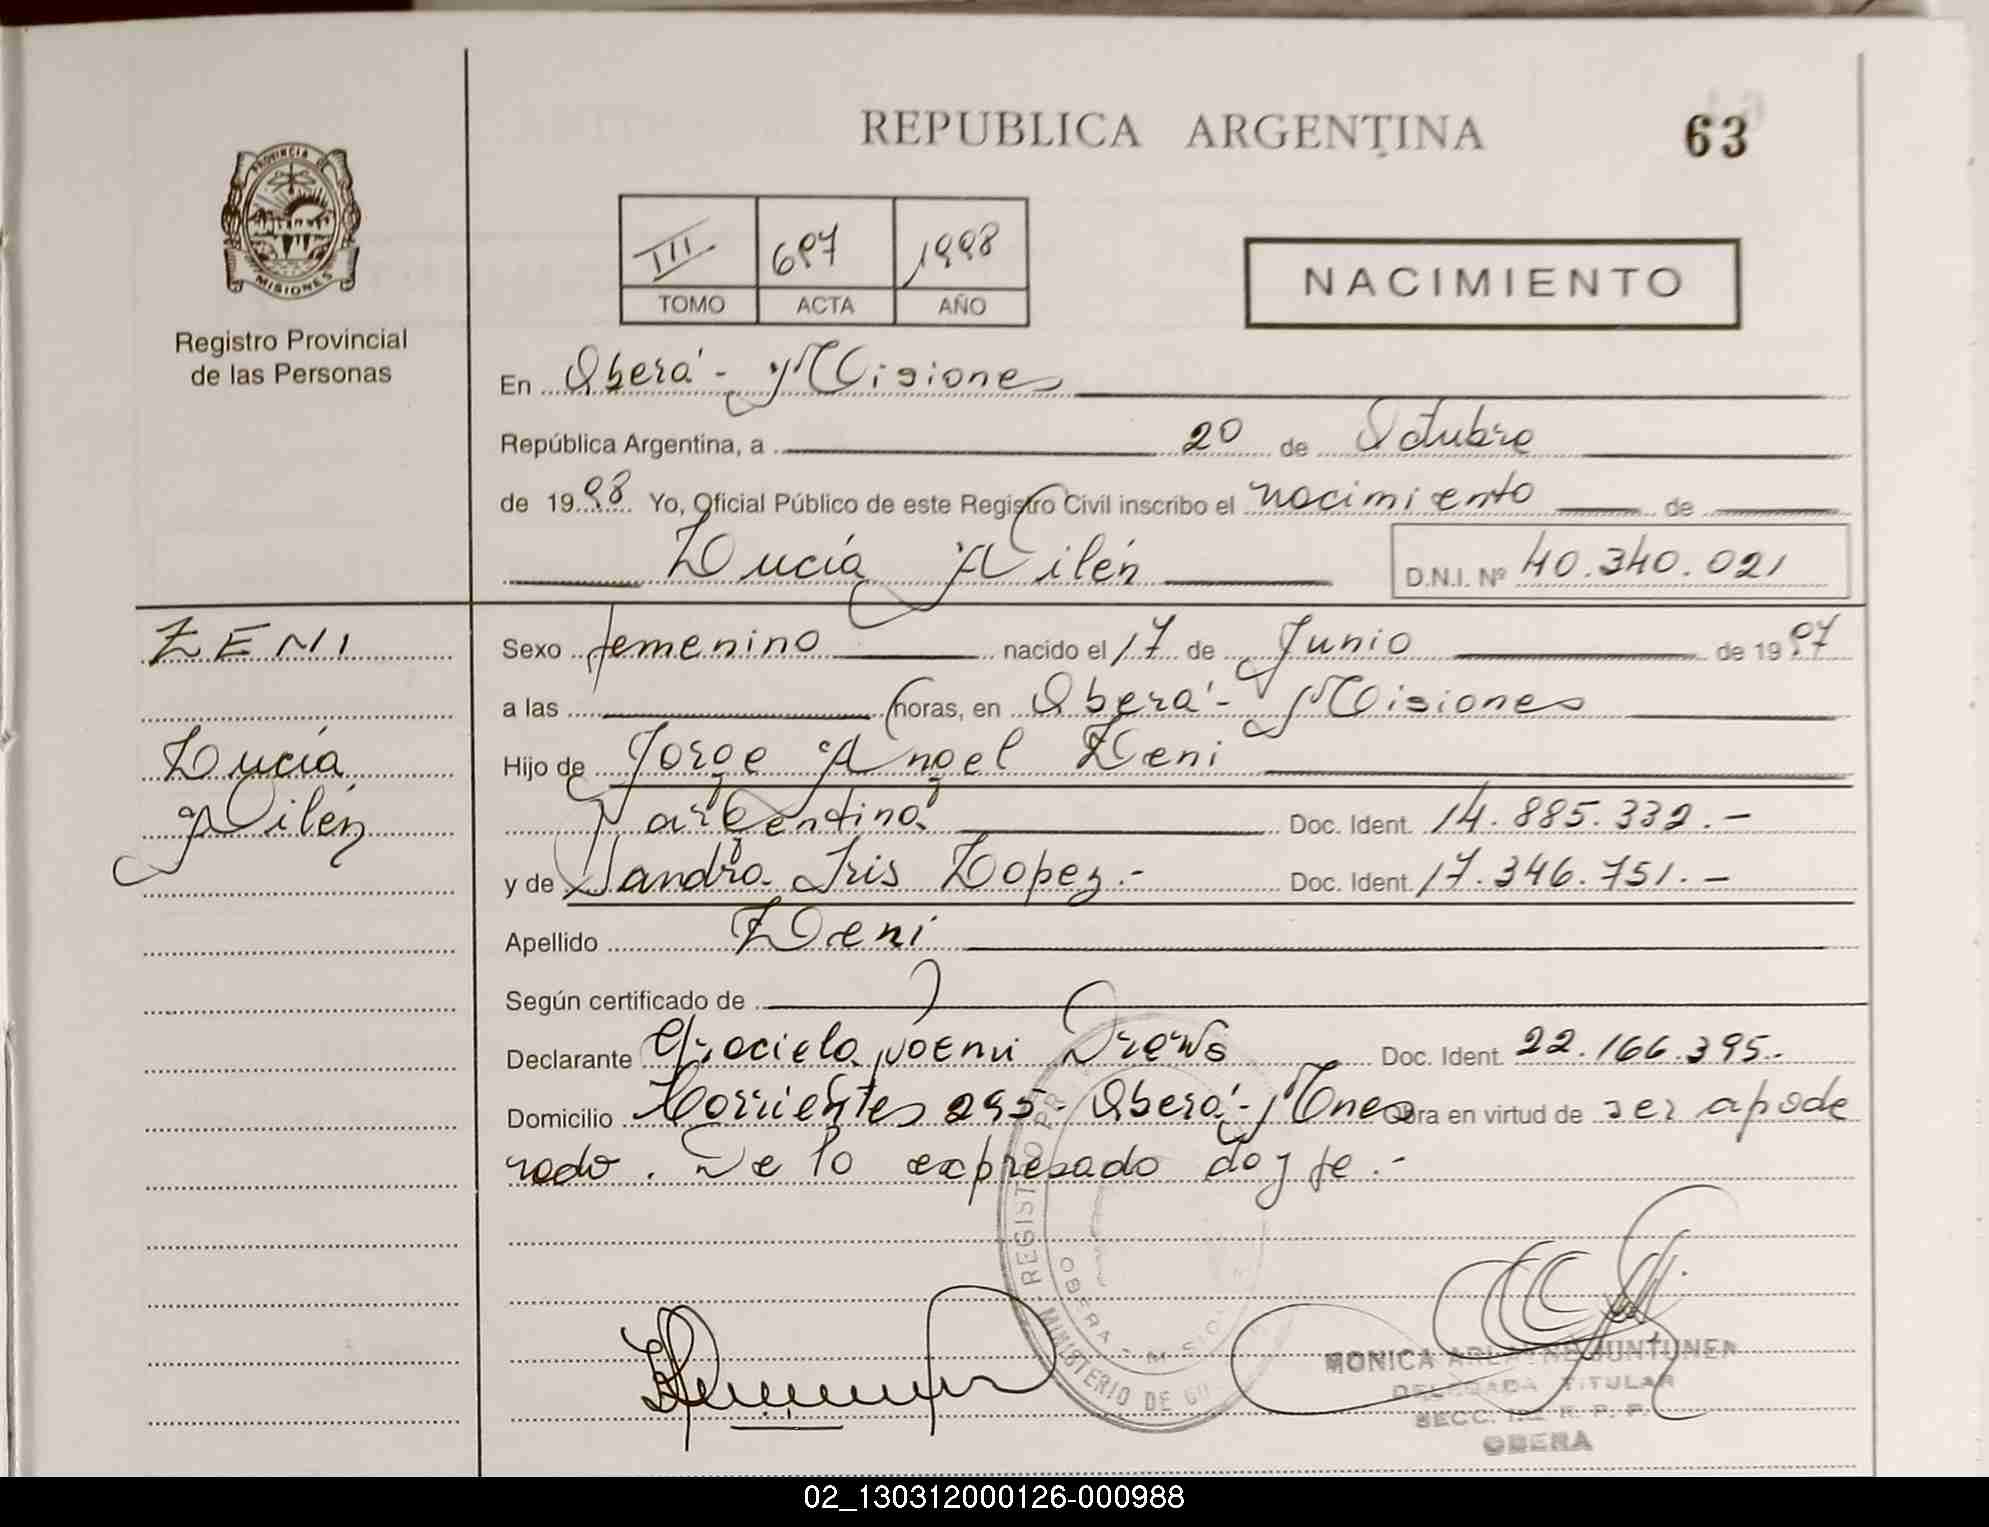 REPUBLICA ARGENTINA 63
PROVINCIA DE
MISIONES
Registro Provincial
de las Personas
III 697 1998
TOMO ACTA AÑO
NACIMIENTO
En Oberá - Misiones
República Argentina, a 20 de Octubre
de 1998 Yo, Oficial Público de este Registro Civil inscribo el nacimiento de
Lucía Ailén D.N.I. Nº 40.340.021
ZENI
Lucía
Ailén
Sexo femenino nacido el 17 de Junio de 1997
a las horas, en Oberá - Misiones
Hijo de Jorge Angel Zeni
argentina Doc. Ident. 14.885.332.-
y de Sandra Iris Lopez.- Doc. Ident. 17.346.751.-
Apellido Zeni
Según certificado de
Declarante Graciela Noemi Drews Doc. Ident. 22.166.395.
Domicilio Corrientes 295 - Oberá - Mnes Obra en virtud de ser apode
rado. De lo expresado doy fe.-
REGISTRO PR
OBERA - MISIO
MINISTERIO DE GO
MONICA ARLENE JUNTUNEN
DELEGADA TITULAR
SECC. R. P. P.
OBERA
02_130312000126-000988